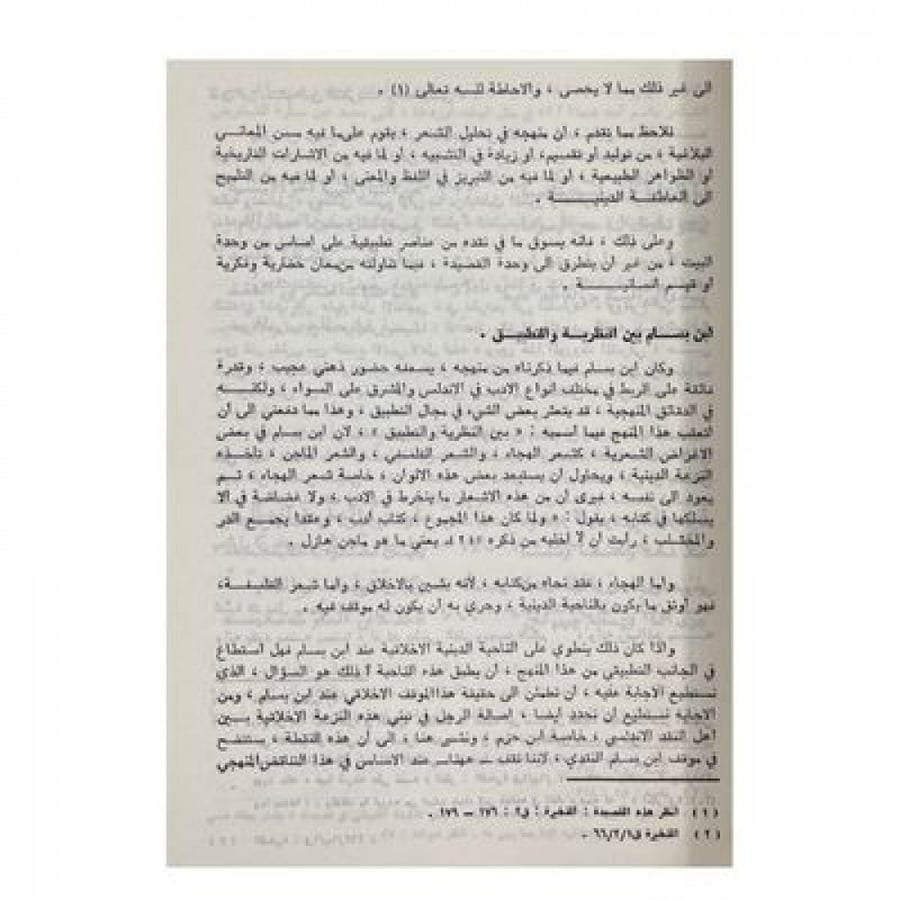 الى غير ذلك مما لا يحصى ، والاحاطة للـه تعالى (١) .
نلاحظ مما تقدم ، ان منهجه في تحليل الشعر ، يقوم على ما فيه من المعاني
البلاغية ، من توليد أو تقسيم، أو زيادة في التشبيه ، أو لما فيه من الاشارات التاريخية
او الظواهر الطبيعية ، أو لما فيه من التبريز في اللفظ والمعنى ، أو لما فيه من التلميح
الى العاطفة الدينيـــــــة .
وعلى ذلك ، فانه يسوق ما في نقده من عناصر تطبيقية على اساس من وحدة
البيت ، من غير ان يتطرق الى وحدة القصيدة ، فيما تناولته من معان حضارية وفكرية
أو قيم انسانيـــــــة .
ابن بســام بين النظرية والتطبيــق .
وكان ابن بسام فيما ذكرناه من منهجه ، يسعفه حضور ذهني عجيب ، وقدرة
فائقة على الربط في مختلف انواع الادب في الاندلس والمشرق على السواء ، ولكنــه
في الدقائق المنهجية ، قد يتعثر بعض الشيء في مجال التطبيق ، وهذا مما دفعني الى أن
أتعقب هذا المنهج فيما أسميه : « بين النظرية والتطبيق » ، لان ابن بسام في بعض
الاغراض الشعرية ، كشعر الهجاء ، والشعر الفلسفي ، والشعر الماجن ، تأخـذه
النزعة الدينية ، ويحاول أن يستبعد بعض هذه الالوان ، خاصة شعر الهجاء ، ثــم
يعود الى نفسه ، فيرى أن من هذه الاشعار ما ينخرط في الادب ، ولا غضاضة في الا
يسلكها في كتابه ، يقول : « ولما كان هذا المجموع ، كتاب أدب ، وعقدا يجمــع الدر
والمخشلب ، رأيت أن لا أخليه من ذكره يعني ما هو ماجن هازل .
واما الهجاء ، فقد نحاه من كتابه ، لأنه يشين بالاخلاق ، واما شعر الفلسفـة،
فهو أوثق ما يكون بالناحية الدينية ، وحري به أن يكون له موقف فيه .
واذا كان ذلك ينطوي على الناحية الدينية الاخلاقية عند ابن بسام فهل استطاع
في الجانب التطبيقي من هذا المنهج ، أن يطبق هذه الناحية ؟ ذلك هو السؤال ، الذي
نستطيع الاجابة عليه ، أن نطمئن الى حقيقة هذا الموقف الاخلاقي عند ابن بسام ، ومن
الاجابة نستطيع أن نحدد أيضا ، اصالة الرجل في تبني هذه النزعة الاخلاقية بــين
أهل النقد الاندلسي ، خاصة ابن حزم ، ونشير هنا ، الى أن هذه النقطة ، ستتضح
في موقف ابن بسام النقدي ، لاننا نقف ــ ههنا ــ عند الاساس في هذا التناقض المنهجي
(١) انظر هذه القصيدة : الذخيرة : ق٢ : ١٧٦ ــ ١٧٩ .
(٢) الذخيرة ق١/٢/٦٦ .